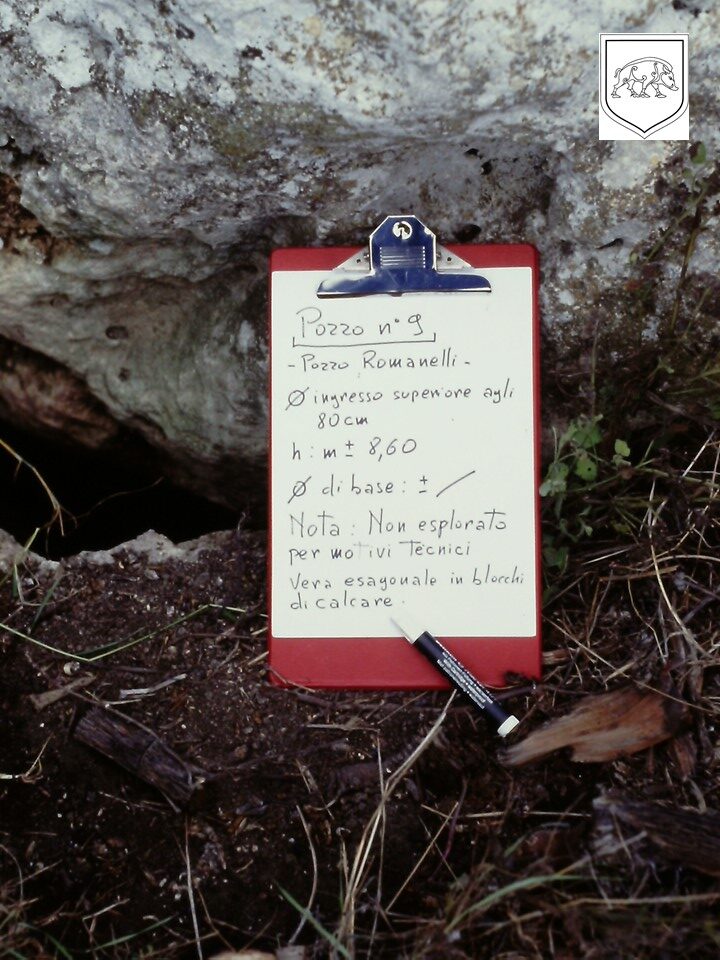 Pozzo n° 9
- Pozzo Romanelli -
Ø ingresso superiore agli
80 cm
h : m ± 8,60
Ø di base : ± /
Nota : Non esplorato
per motivi Tecnici
Vera esagonale in blocchi
di calcare .